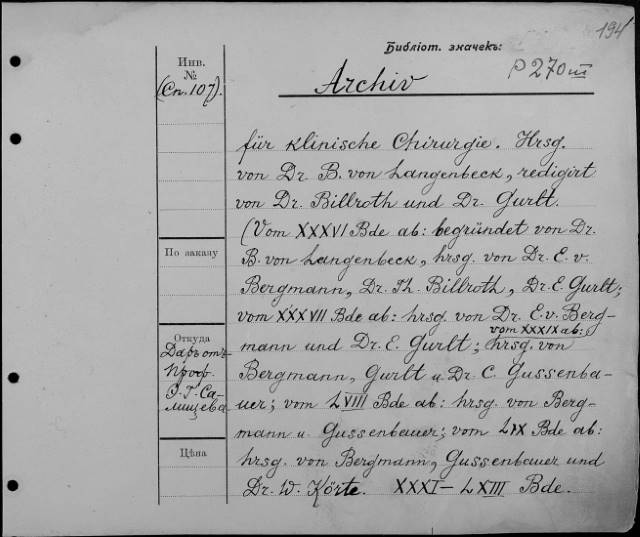 194
Библіот. значекъ:
Р 270 III
Инв.
№
(Сп. 107).
Archiv
für klinische Chirurgie. Hrsg.
von Dr B. von Langenbeck, redigirt
von Dr. Billroth und Dr. Gurlt.
(Vom XXXVI Bde ab: begründet von Dr.
B. von Langenbeck, hrsg. von Dr. E. v.
Bergmann, Dr. Th. Billroth, Dr. E. Gurlt;
vom XXXVIII Bde ab: hrsg. von Dr. E. v. Berg-
vom XXXIX ab:
mann und Dr. E. Gurlt; hrsg. von
Bergmann, Gurlt u. Dr. C. Gussenba-
uer; vom LVIII Bde ab: hrsg. von Berg-
mann u. Gussenbauer; vom LIX Bde ab:
hrsg. von Bergmann, Gussenbauer und
Dr. W. Körte. XXXI–LXIII Bde.
По заказу
Откуда
Даръ отъ
проф.
Э. Г. Са-
лищева
Цѣна